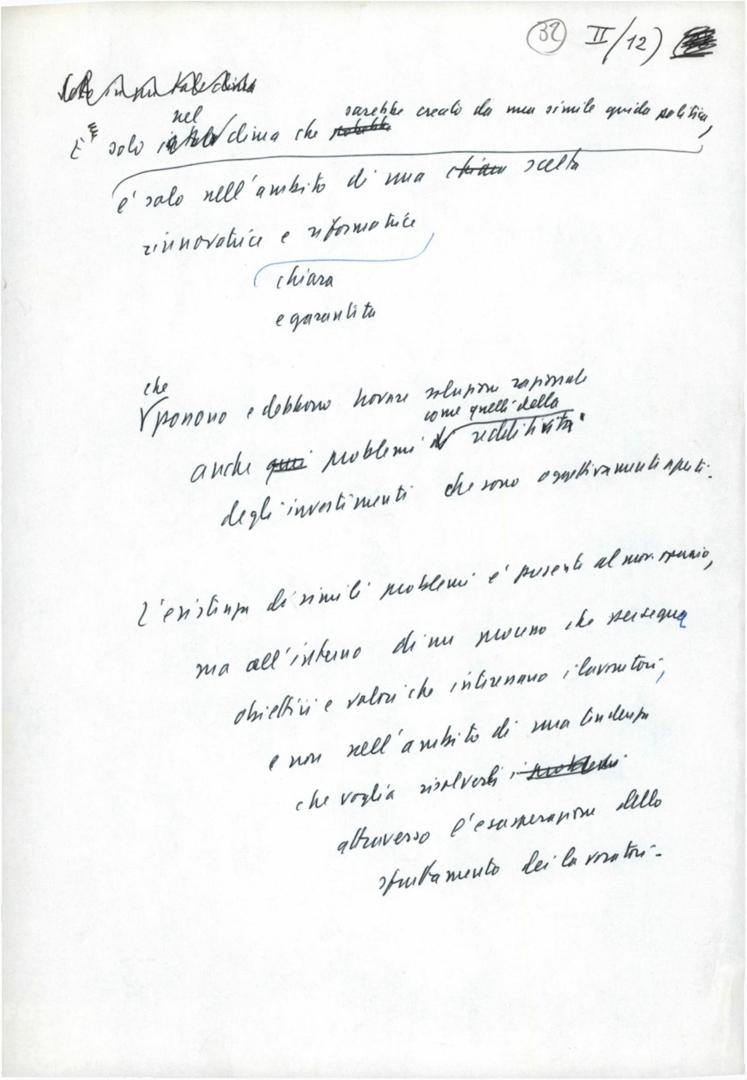 32 II/12)
nel sarebbe creato da una simile guida politica,
E' solo clima che
é solo nell'ambito di una chiara scelta
rinnovatrice e riformatrice
chiara
e garantita
che
possono e debbono trovare soluzione razionale
come quelli della
anche qui problemi redditività
degli investimenti che sono oggettivamente aperti.
L'esistenza di simili problemi é presente al mov. operaio,
ma all'interno di un processo che persegua
obiettivi e valori che interessano i lavoratori,
e non nell'ambito di una tendenza
che voglia risolverli i problemi
attraverso l'esasperazione dello
sfruttamento dei lavoratori.